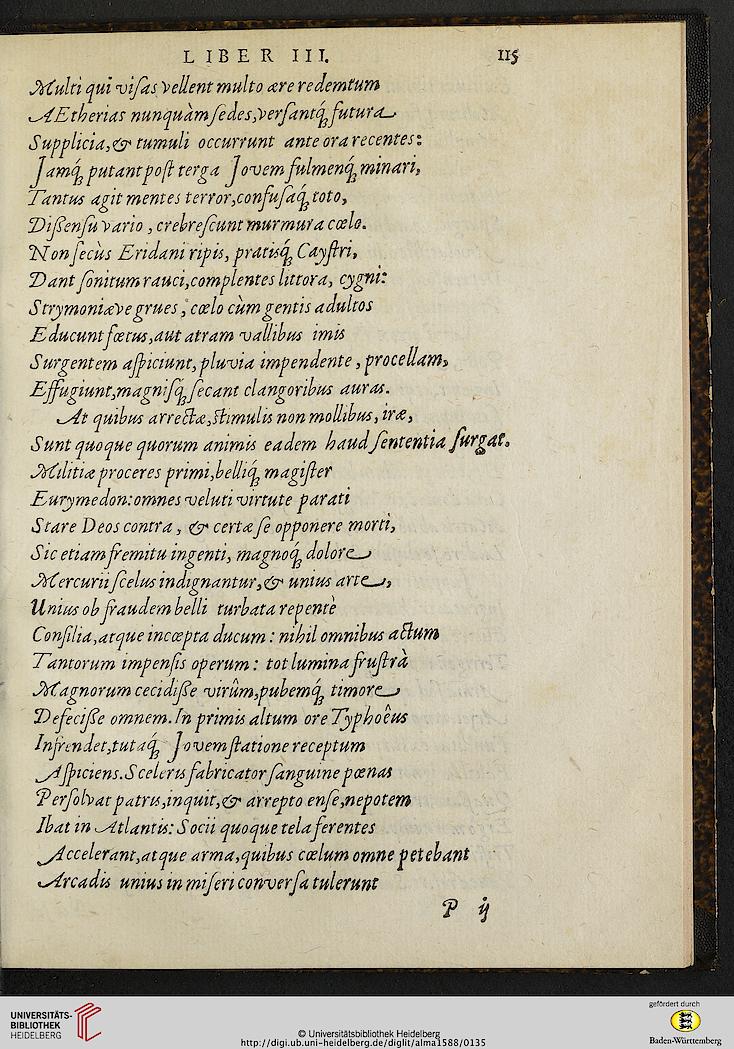 LIBER III. 115
Multi qui viſas vellent multo ære redemtum
AEtherias nunquàm ſedes, verſantq́; futura
Supplicia, & tumuli occurrunt ante ora recentes:
Jamq́; putant poſt terga Jovem fulmenq́; minari,
Tantus agit mentes terror, confuſaq́; toto,
Dißenſu vario, crebreſcunt murmura cœlo.
Non ſecùs Eridani ripis, pratisq́; Cayſtri,
Dant ſonitum rauci, complentes littora, cygni:
Strymoniæve grues, cœlo cùm gentis adultos
Educunt fœtus, aut atram vallibus imis
Surgentem aſpiciunt, pluvia impendente, procellam,
Effugiunt, magniſq́; ſecant clangoribus auras.
At quibus arrectæ, ſtimulis non mollibus, iræ,
Sunt quoque quorum animis eadem haud ſententia ſurgat.
Militiæ proceres primi, belliq́; magiſter
Eurymedon: omnes veluti virtute parati
Stare Deos contra, & certæ ſe opponere morti,
Sic etiam fremitu ingenti, magnoq́; dolore
Mercurii ſcelus indignantur, & unius arte,
Unius ob fraudem belli turbata repentè
Conſilia, atque incœpta ducum: nihil omnibus actum
Tantorum impenſis operum: tot lumina fruſtrà
Magnorum cecidiße virûm, pubemq́; timore
Defeciße omnem. In primis altum ore Typhoêus
Infrendet, tutaq́; Jovem ſtatione receptum
Aſpiciens. Sceleris fabricator ſanguine pœnas
Perſolvat patris, inquit, & arrepto enſe, nepotem
Ibat in Atlantis: Socii quoque tela ferentes
Accelerant, atque arma, quibus cœlum omne petebant
Arcadis unius in miſeri converſa tulerunt
P ij
UNIVERSITÄTS-
BIBLIOTHEK
HEIDELBERG
© Universitätsbibliothek Heidelberg
http://digi.ub.uni-heidelberg.de/diglit/alma1588/0135
gefördert durch
Baden-Württemberg